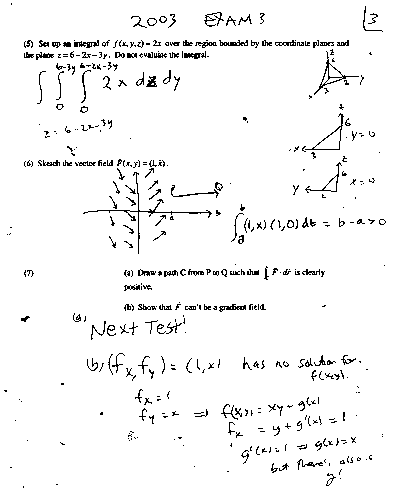 2003 EXAM 3
3
(5) Set up an integral of f(x,y,z) = 2x over the region bounded by the coordinate planes and
the plane z = 6 - 2x - 3y. Do not evaluate the integral.
6-3y 6-2x-3y
∫ ∫ ∫ 2x dz dy
0 0
z = 6-2x-3y
z
y
z
6
y=0
x 3
z
6
x=0
y 2
(6) Sketch the vector field F(x,y) = (1,x).
P Q
a b
∫ₐᵇ (1,x)(1,0) dt = b-a>0
(7) (a) Draw a path C from P to Q such that ∫ F · dr is clearly
positive.
(b) Show that F can't be a gradient field.
(a) Next Test!
(b) (fx, fy) = (1,x) has no solution for
f(x,y).
fx = 1
fy = x ⇒ f(x,y) = xy + g(x)
fx = y + g'(x) = 1
g'(x)=1 ⇒ g(x)=x
but there's also a
y!